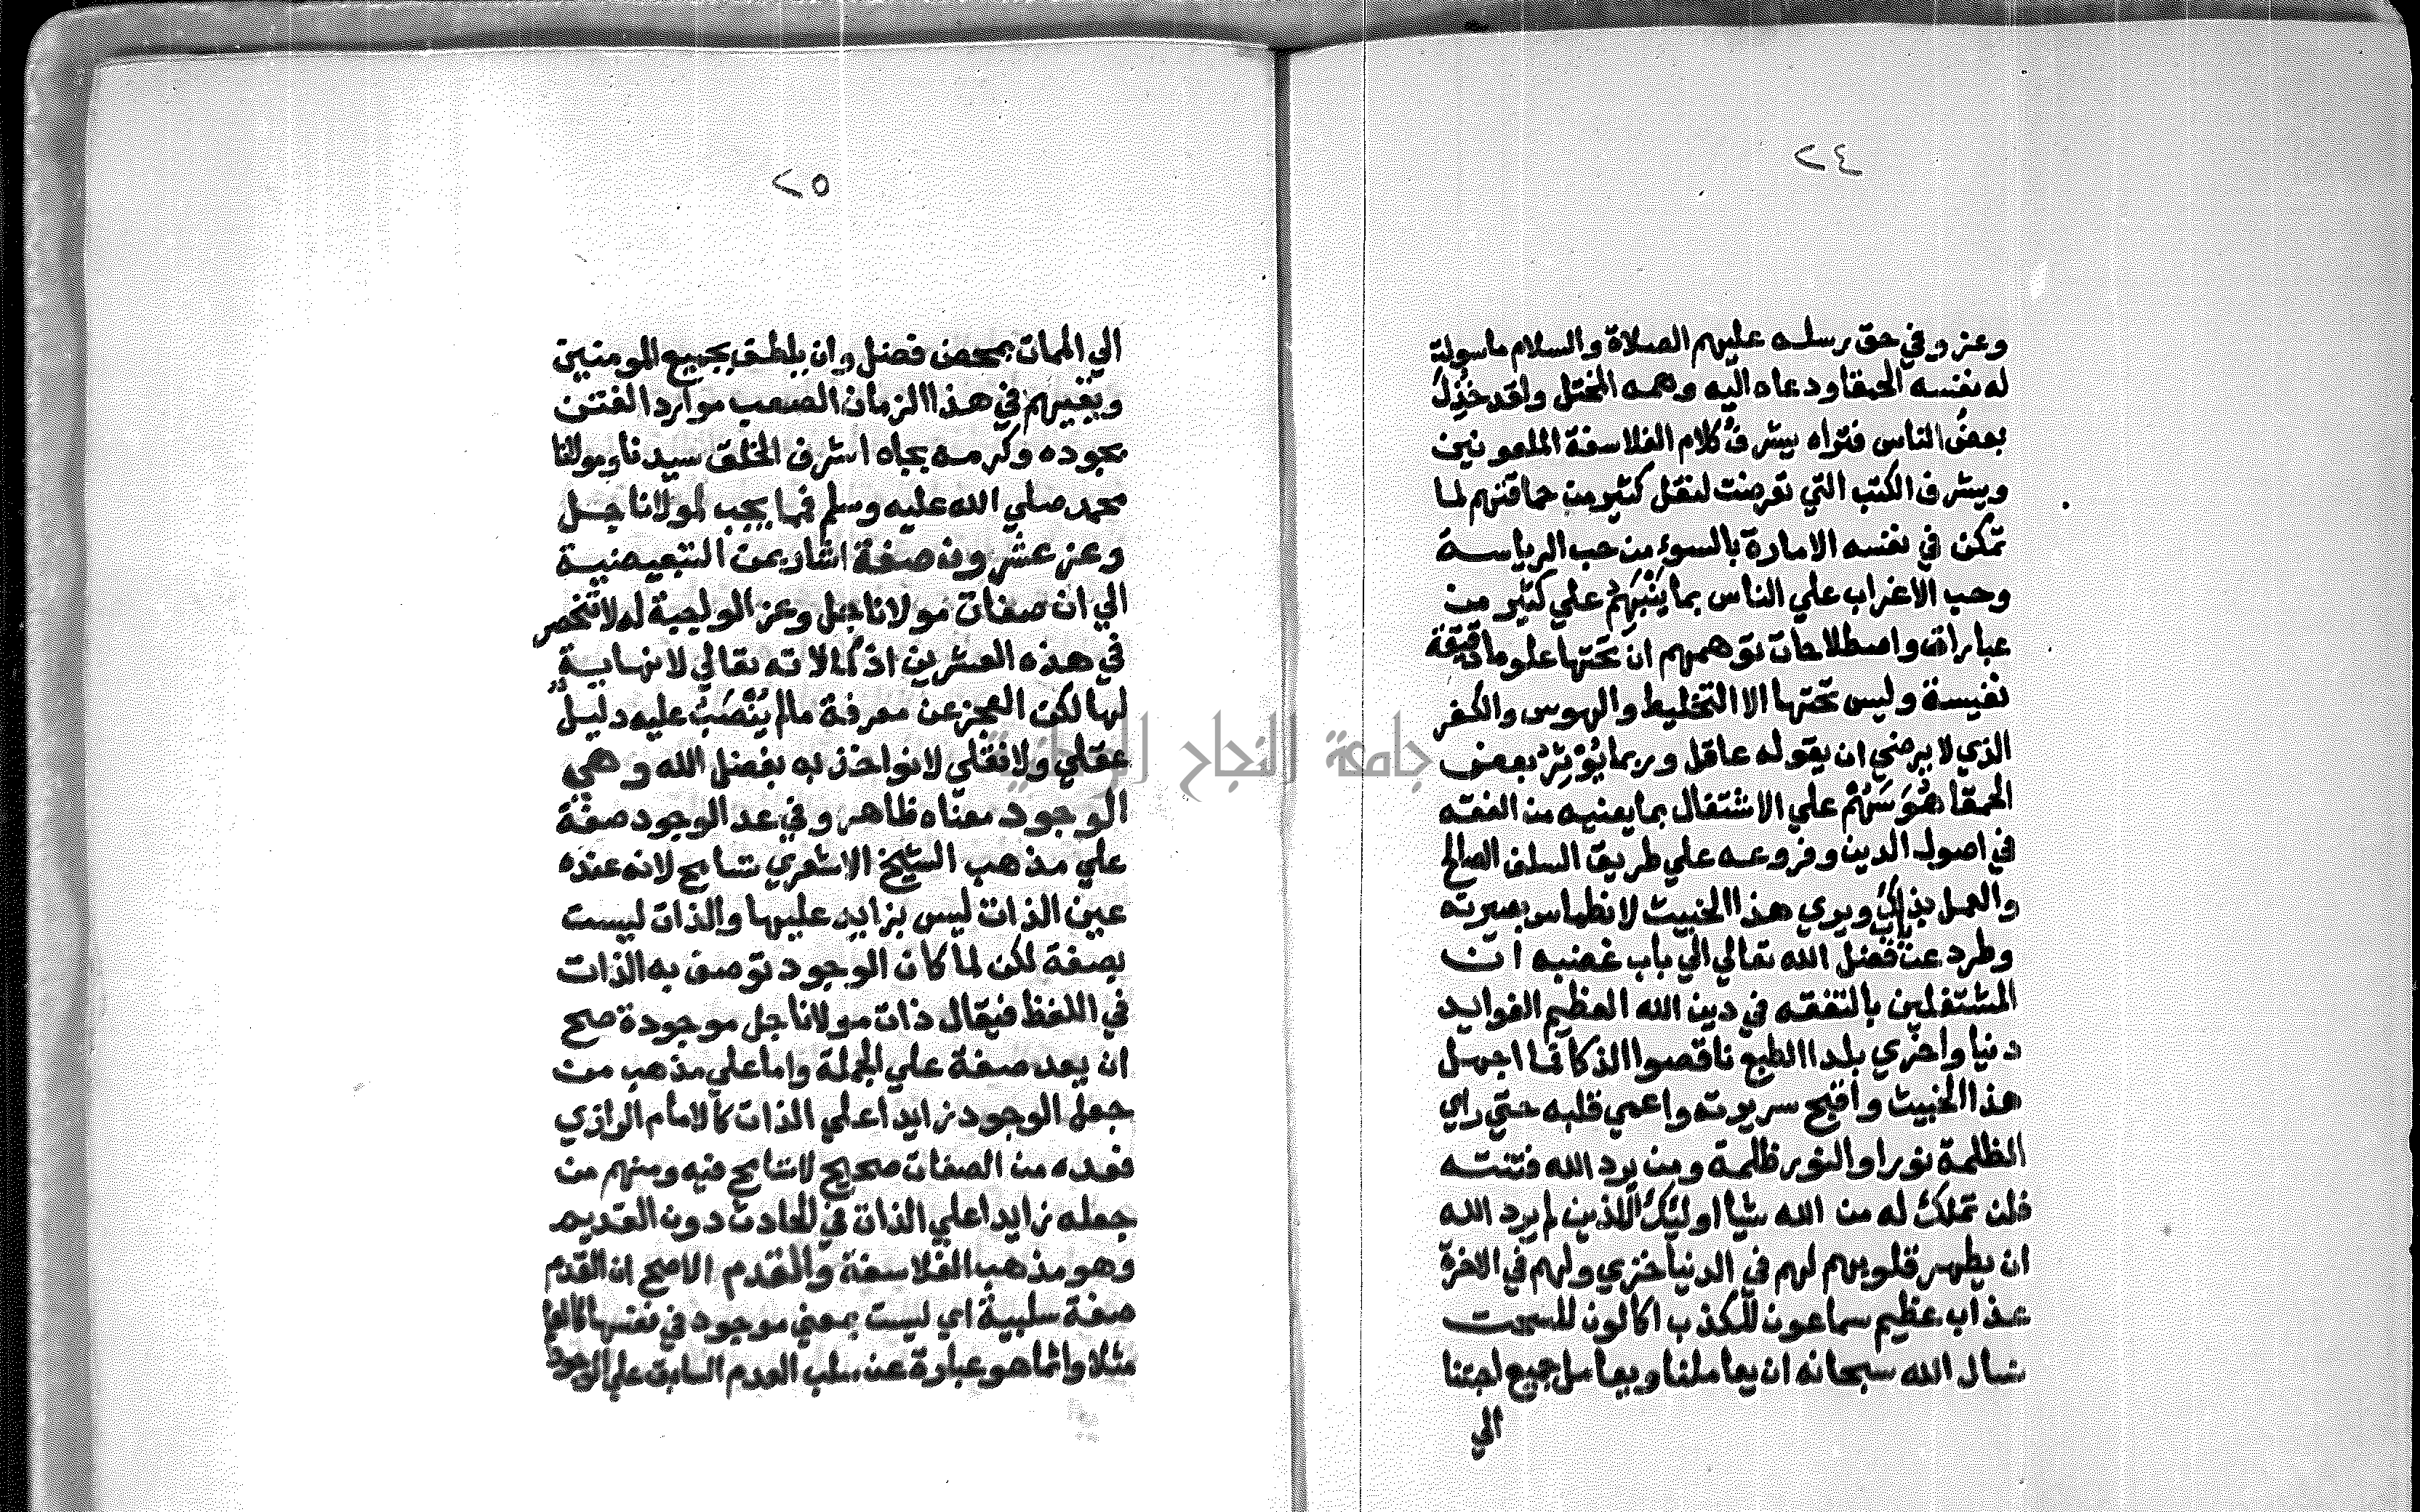 ٢٤
وعز وفي حق رسله عليهم الصلاة والسلام ماسولت
له نفسه الحمقا ودعاه اليه وهمه المختل ولقد خذل
بعض الناس فتراه يشرف كلام الفلاسفة الملعونين
ويشرف الكتب التي تعرضت لنقل كثير من حماقتهم لما
تمكن في نفسه الامارة بالسوء من حب الرياسة
وحب الاغراب علي الناس بما ينبهم علي كثير من
عبارات واصطلاحات توهمهم ان تحتها علوما دقيقة
نفيسة وليس تحتها الا التخليط والهوس والكفر
الذي لا يرضي ان يقوله عاقل وربما يؤثر بعض
الحمقا هوسهم علي الاشتغال بما يعنيه من الفقه
في اصول الدين وفروعه علي طريق السلف الصالح
والعمل بذلك ويري هذا الخبيث لانطماس بصيرته
وطرده عن باب فضل الله تعالي الي باب غضبه ان
المشتغلين بالتفقه في دين الله العظيم الفوايد
دنيا واخري بلدا الطبع ناقصوا الذكا فما اجهل
هذا الخبيث واقبح سريرته واعمي قلبه حتي راي
الظلمة نورا والنور ظلمة ومن يرد الله فتنته
فلن تملك له من الله شيا اوليك الذين لم يرد الله
ان يطهر قلوبهم لهم في الدنيا خزي ولهم في الاخرة
عذاب عظيم سماعون للكذب اكالون للسحت
نسال الله سبحانه ان يعاملنا ويعامل جميع احبتنا
الي
٢٥
الي الممات بمحض فضل وان يلطف بجميع المومنين
ويقيهم في هذا الزمان الصعب موارد الفتن
بجوده وكرمه بجاه اشرف الخلق سيدنا ومولانا
محمد صلي الله عليه وسلم فمما يجب لمولانا جل
وعز عشرون صفة اشار بمن التبعيضية
الي ان صفات مولانا جل وعز الواجبة له لا تنحصر
في هذه العشرين اذ كمالاته تعالي لا نهاية
لها لكن العجز عن معرفة مالم ينصب عليه دليل
عقلي ولا نقلي لا نواخذ به بفضل الله وهي
الوجود معناه ظاهر وفي عد الوجود صفة
علي مذهب الشيخ الاشعري تسامح لانه عنده
عين الذات ليس بزايد عليها والذات ليست
بصفة لكن لما كان الوجود توصف به الذات
في اللفظ فيقال ذات مولانا جل موجودة صح
ان يعد صفة علي الجملة واما علي مذهب من
جعل الوجود زايدا علي الذات كالامام الرازي
فعده من الصفات صحيح لا تسامح فيه ومنهم من
جعله زايدا علي الذات في الحادث دون القديم
وهو مذهب الفلاسفة والقدم الاصح ان القدم
صفة سلبية اي ليست بمعني موجود في نفسها كالعلم
مثلا وانما هو عبارة عن سلب العدم السابق علي الوجود
جامعة النجاح الوطنية